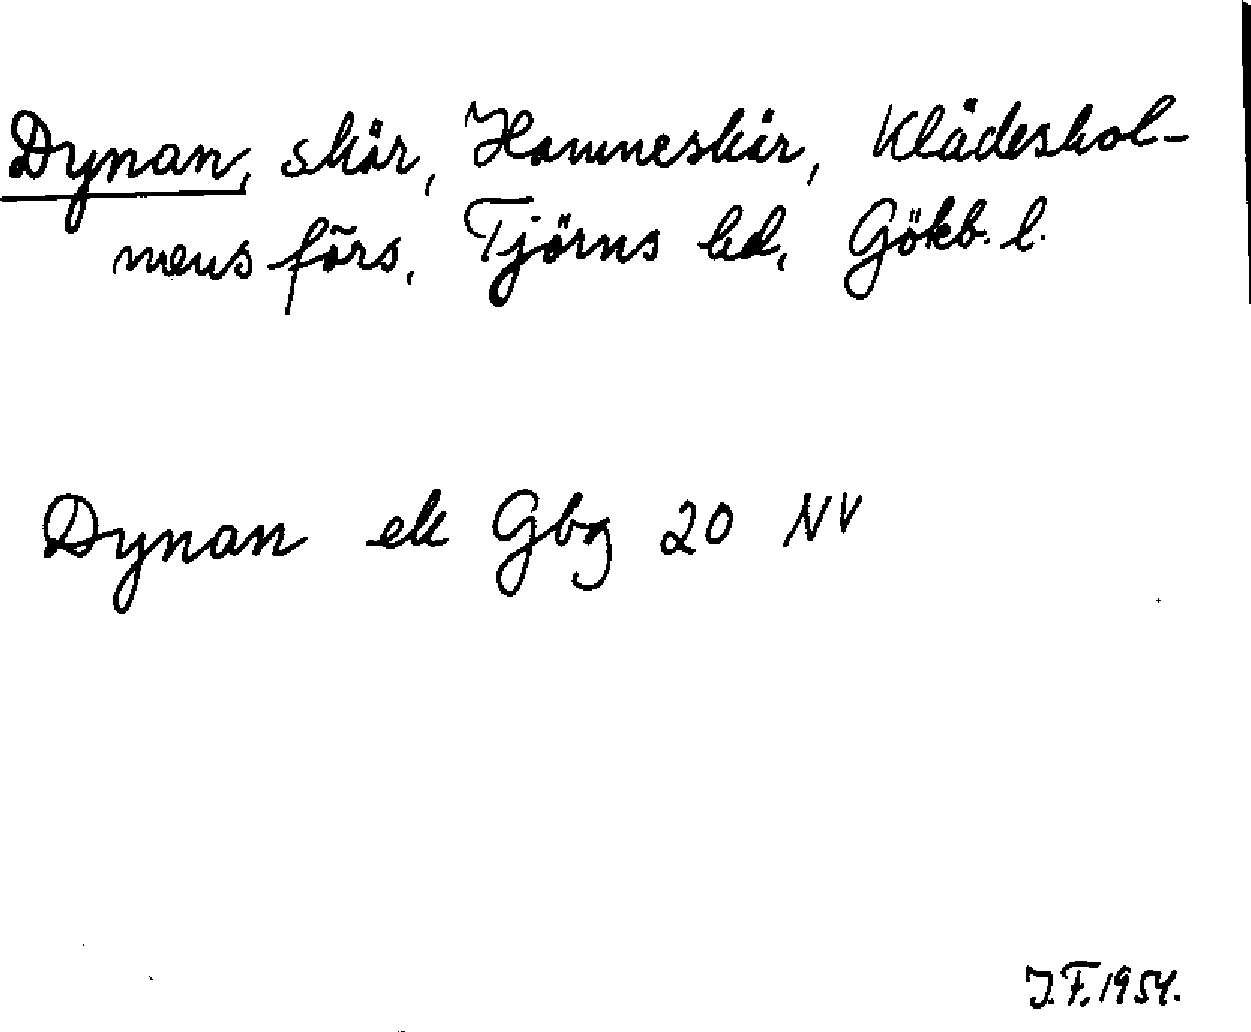 Dynan, skär, Hamneskär, Klädeshol-
mens förs, Tjörns hd, Gökb. l.
Dynan ek Gbg 20 NV
J.F. 1954.